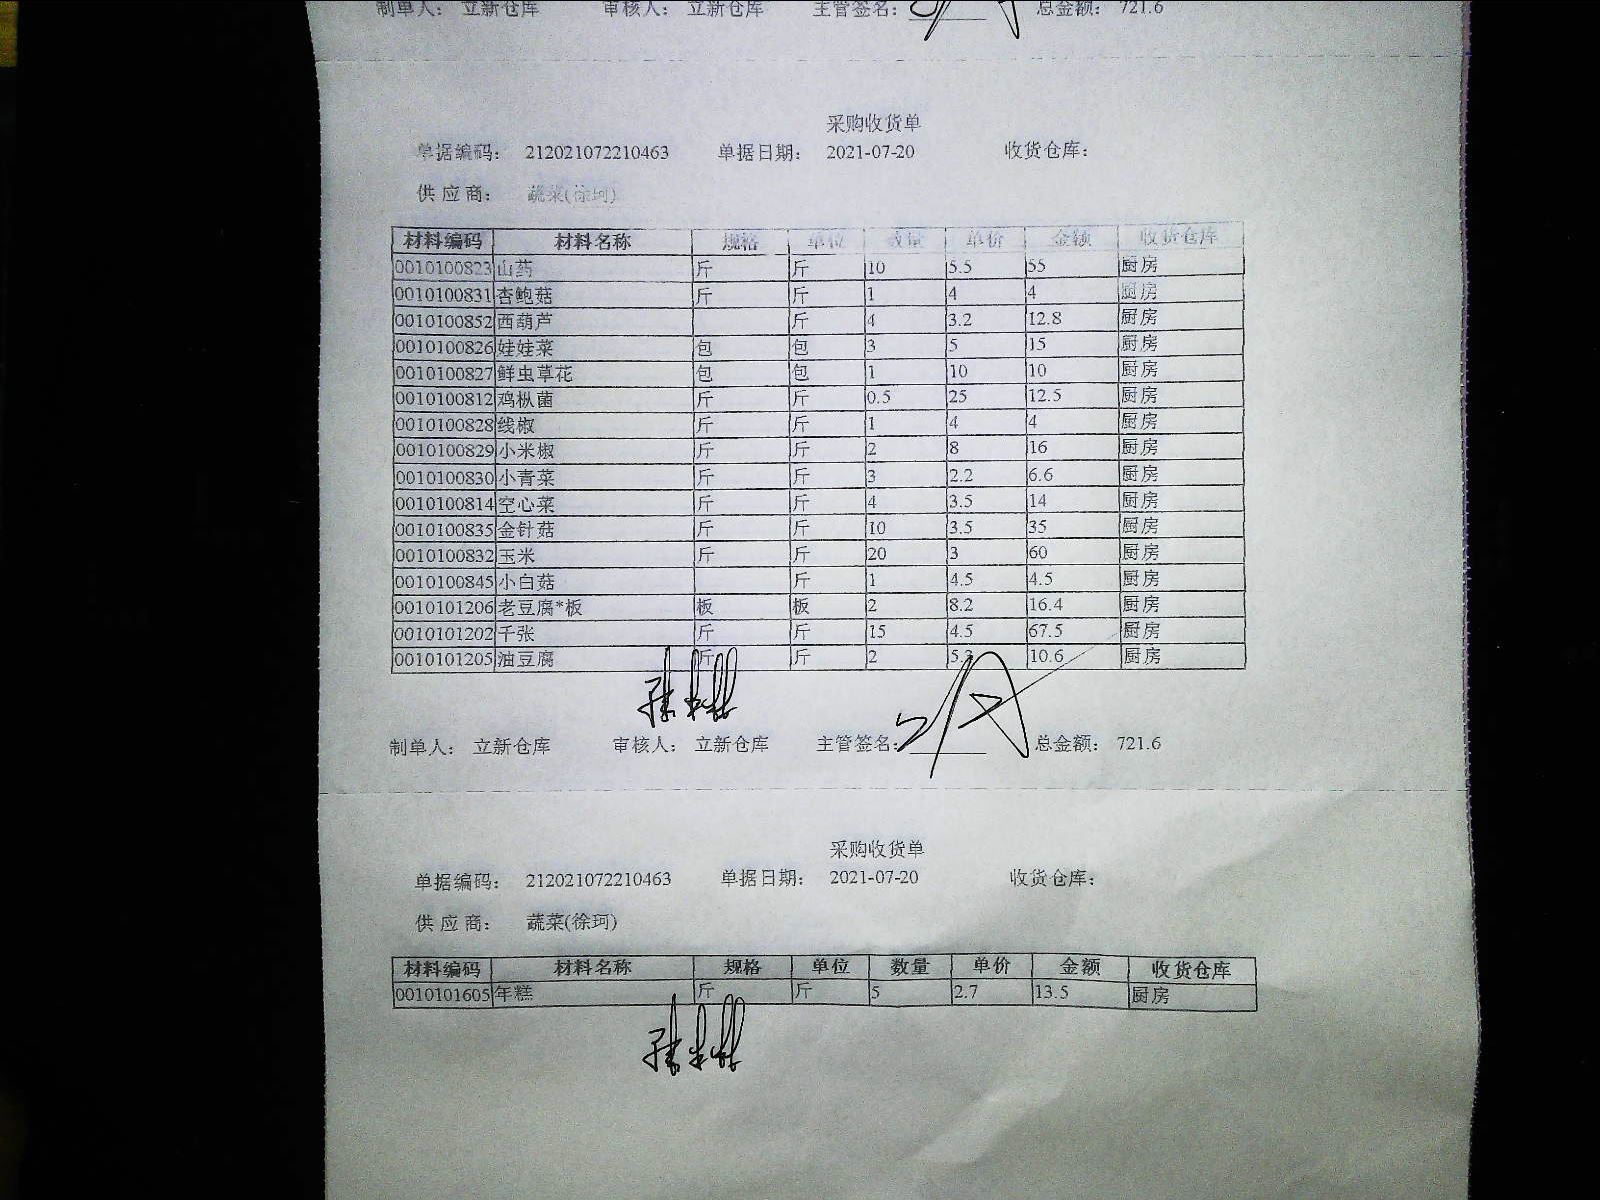 制单人： 立新仓库 审核人： 立新仓库 主管签名： 总金额： 721.6
采购收货单
单据编码： 212021072210463 单据日期： 2021-07-20 收货仓库：
供 应 商： 蔬菜(徐珂)
材料编码 材料名称 规格 单位 数量 单价 金额 收货仓库
0010100823 山药 斤 斤 10 5.5 55 厨房
0010100831 杏鲍菇 斤 斤 1 4 4 厨房
0010100852 西葫芦 斤 4 3.2 12.8 厨房
0010100826 娃娃菜 包 包 3 5 15 厨房
0010100827 鲜虫草花 包 包 1 10 10 厨房
0010100812 鸡枞菌 斤 斤 0.5 25 12.5 厨房
0010100828 线椒 斤 斤 1 4 4 厨房
0010100829 小米椒 斤 斤 2 8 16 厨房
0010100830 小青菜 斤 斤 3 2.2 6.6 厨房
0010100814 空心菜 斤 斤 4 3.5 14 厨房
0010100835 金针菇 斤 斤 10 3.5 35 厨房
0010100832 玉米 斤 斤 20 3 60 厨房
0010100845 小白菇 斤 1 4.5 4.5 厨房
0010101206 老豆腐*板 板 板 2 8.2 16.4 厨房
0010101202 千张 斤 斤 15 4.5 67.5 厨房
0010101205 油豆腐 斤 斤 2 5.3 10.6 厨房
制单人： 立新仓库 审核人： 立新仓库 主管签名： 总金额： 721.6
采购收货单
单据编码： 212021072210463 单据日期： 2021-07-20 收货仓库：
供 应 商： 蔬菜(徐珂)
材料编码 材料名称 规格 单位 数量 单价 金额 收货仓库
0010101605 年糕 斤 斤 5 2.7 13.5 厨房